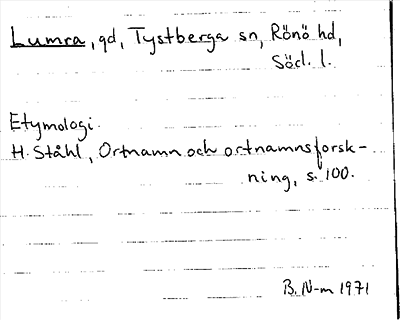 Lumra, gd, Tystberga sn, Rönö hd,
Söd. l.
Etymologi.
H. Ståhl, Ortnamn och ortnamnsforsk-
ning, s. 100.
B. N-m 1971